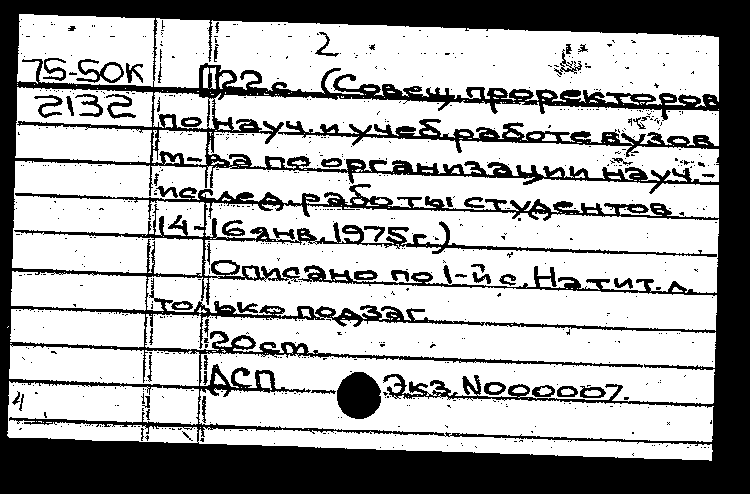 2
75-50К
2132
[1],22 с. (Совещ. проректоров
по науч. и учеб. работе вузов
м-ва по организации науч.-
исслед. работы студентов.
14-16 янв. 1975 г.)
Описано по 1-й с. На тит. л.
только подзаг.
20 см.
ДСП. Экз. N000007.
4